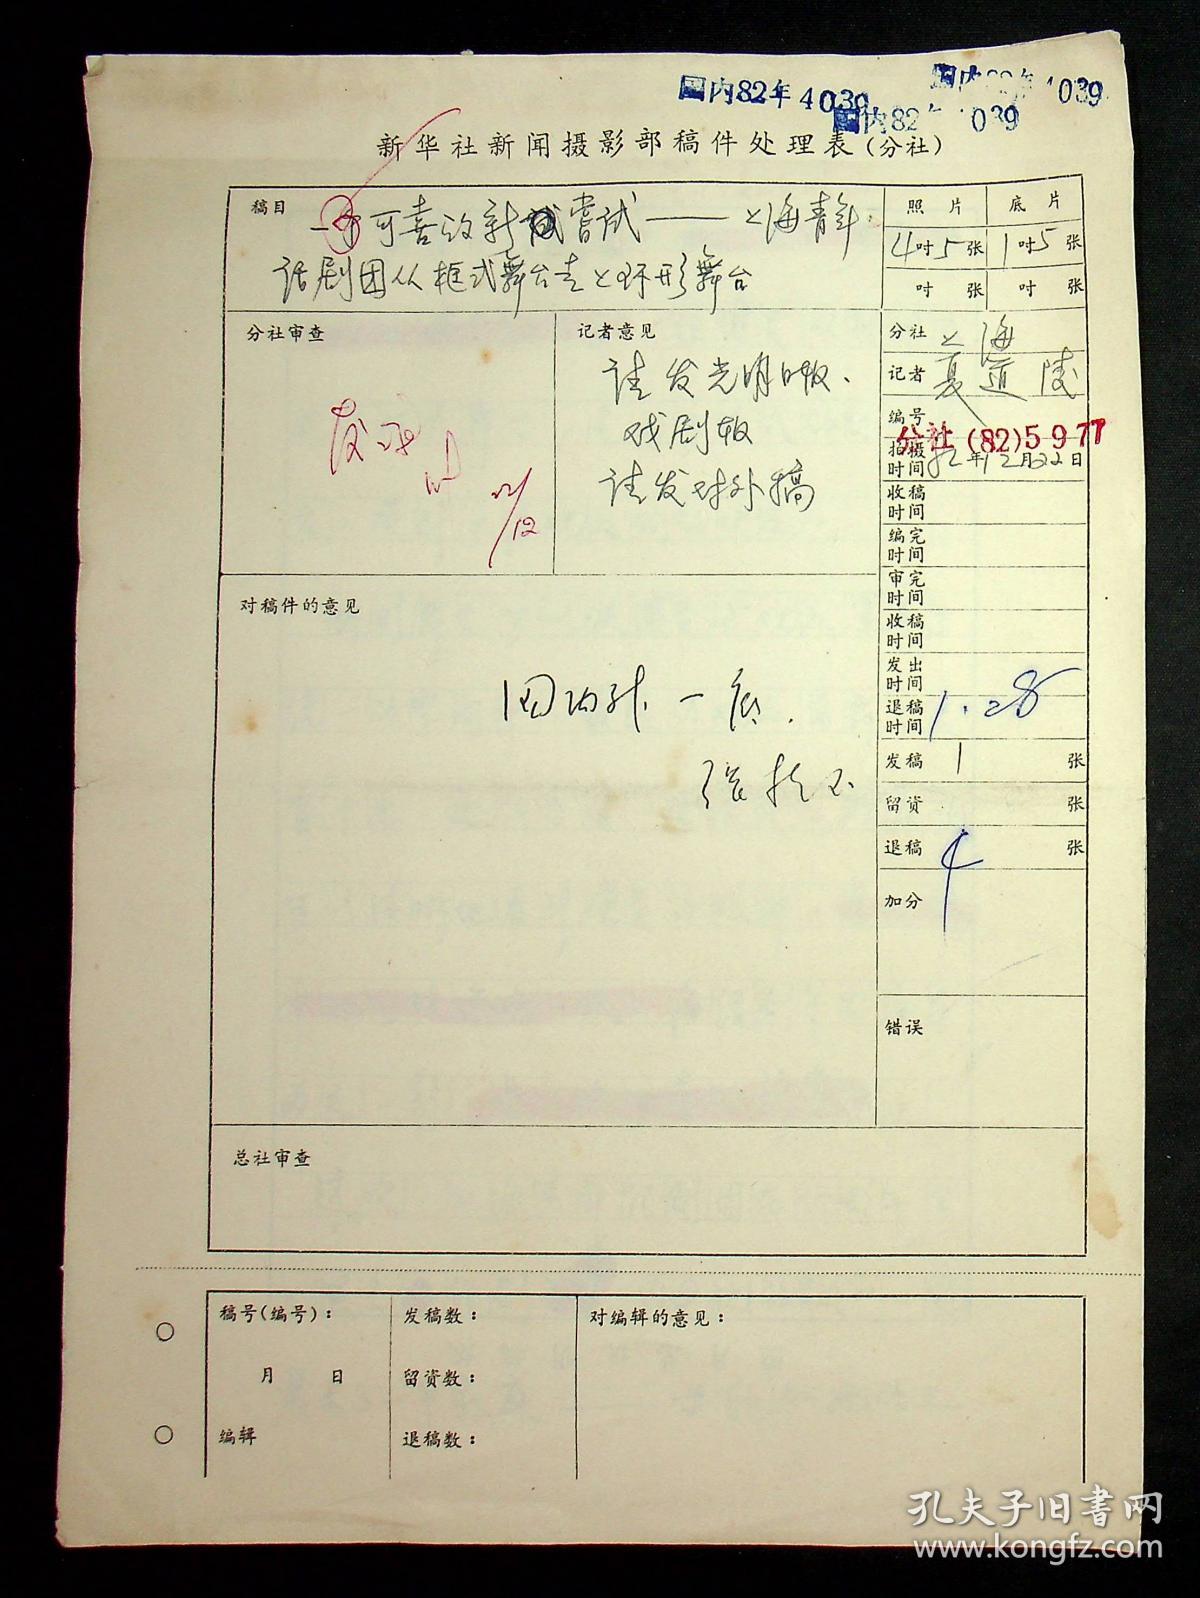 国内82年4039
国内82年4039
国内82 039
新华社新闻摄影部稿件处理表(分社)
稿目
一个可喜的新尝试——上海青年
话剧团从框式舞台走上环形舞台
照片 底片
4吋5张 1吋5张
吋 张 吋 张
分社审查
12
记者意见
请发光明日报、
戏剧报
请发对外稿
分社 上海
记者 夏道陵
编号 分社(82)5977
拍摄时间 82年12月22日
收稿时间
编完时间
审完时间
收稿时间
发出时间
退稿时间 1.28
发稿 1 张
留资 张
退稿 4 张
加分
错误
对稿件的意见
一底.
总社审查
稿号(编号):
月 日
编辑
发稿数:
留资数:
退稿数:
对编辑的意见:
孔夫子旧书网
www.kongfz.com